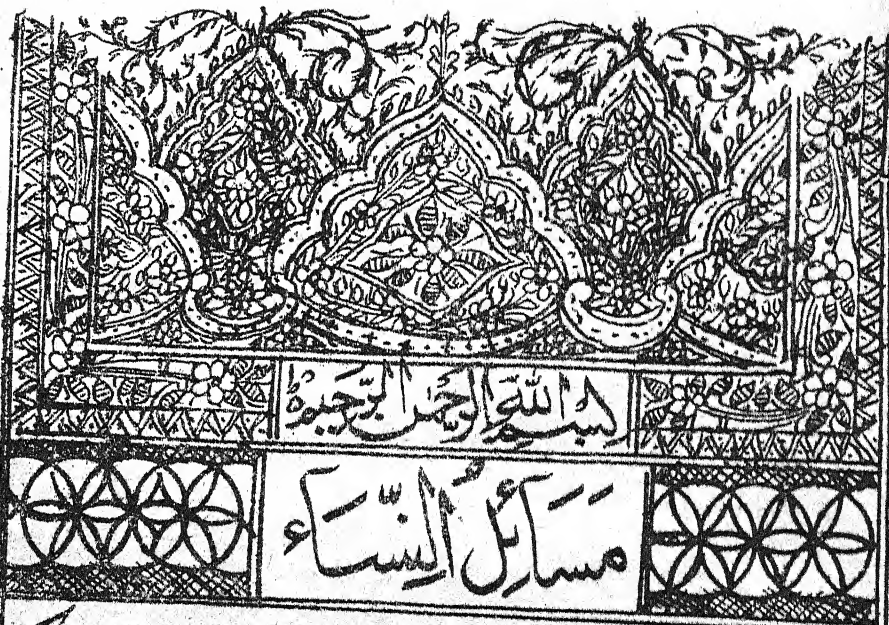 بسم الله الرحمن الرحيم
مَسَآئِلُ النِّسَآء